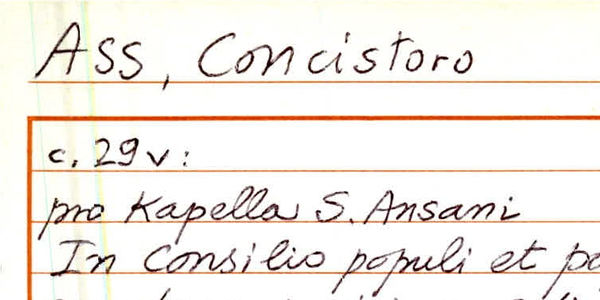 Ass, Concistoro
c. 29 v:
pro Kapella S. Ansani
In Consilio populi et